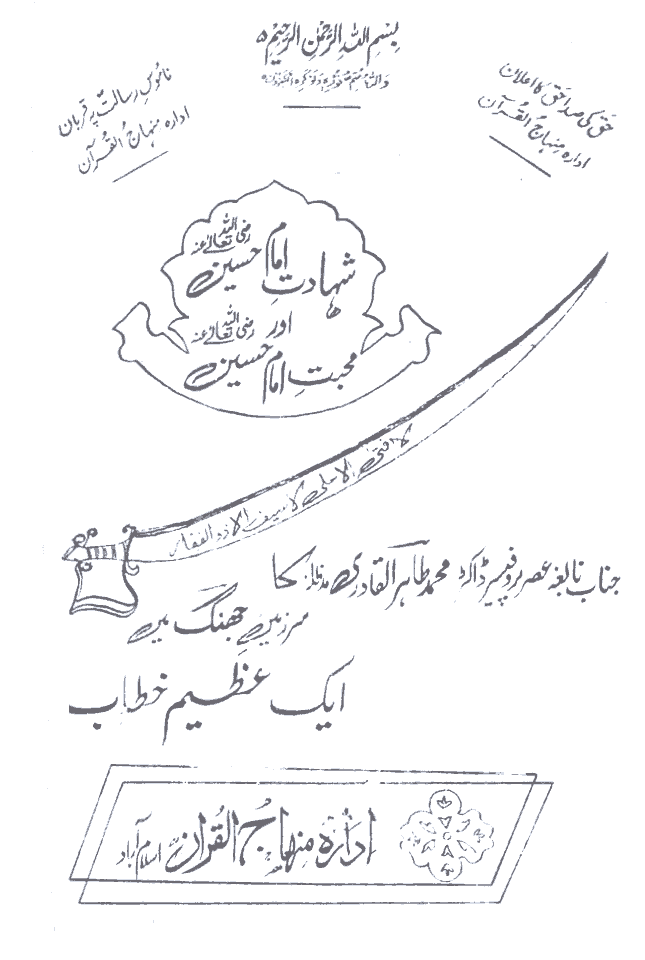 بِسْمِ اللهِ الرَّحْمٰنِ الرَّحِیْمِ ۵
وَاللهُ مُتِمُّ نُوْرِهٖ وَلَوْ كَرِهَ الْكٰفِرُوْنَ
حق کی صدا حق کا اعلان
ادارہ منہاج القُرآن
ناموسِ رسالت پر قربان
ادارہ منہاج القُرآن
شہادتِ امام حسین رضی اللہ تعالےٰ عنہ
اور
محبتِ امام حسین رضی اللہ تعالےٰ عنہ
لا فتیٰ الا علی لا سیف الا ذوالفقار
جناب نابغہ عصر پروفیسر ڈاکٹر محمد طاہر القادری مدظلہ کا
سرزمینِ جھنگ میں
ایک عظیم خطاب
ادارہ منہاج القرآن اسلام آباد